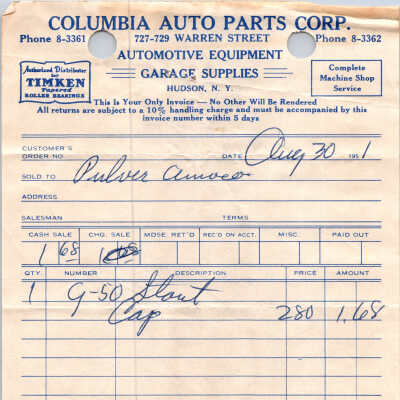 COLUMBIA AUTO PARTS CORP.
Phone 8-3361 727-729 WARREN STREET Phone 8-3362
AUTOMOTIVE EQUIPMENT
GARAGE SUPPLIES
HUDSON, N. Y.
Authorized Distributor for
TIMKEN
Tapered
ROLLER BEARINGS
Complete
Machine Shop
Service
This is Your Only Invoice — No Other Will Be Rendered
All returns are subject to a 10% handling charge and must be accompanied by this
invoice number within 5 days
CUSTOMER'S
ORDER NO. DATE Aug 30 1951
SOLD TO Pulver Amoco
ADDRESS
SALESMAN TERMS
CASH SALE CHG. SALE MDSE. RET'D REC'D ON ACCT. MISC. PAID OUT
1 68 1 68
QTY. NUMBER DESCRIPTION PRICE AMOUNT
1 G-50 Stant
Cap 280 1.68